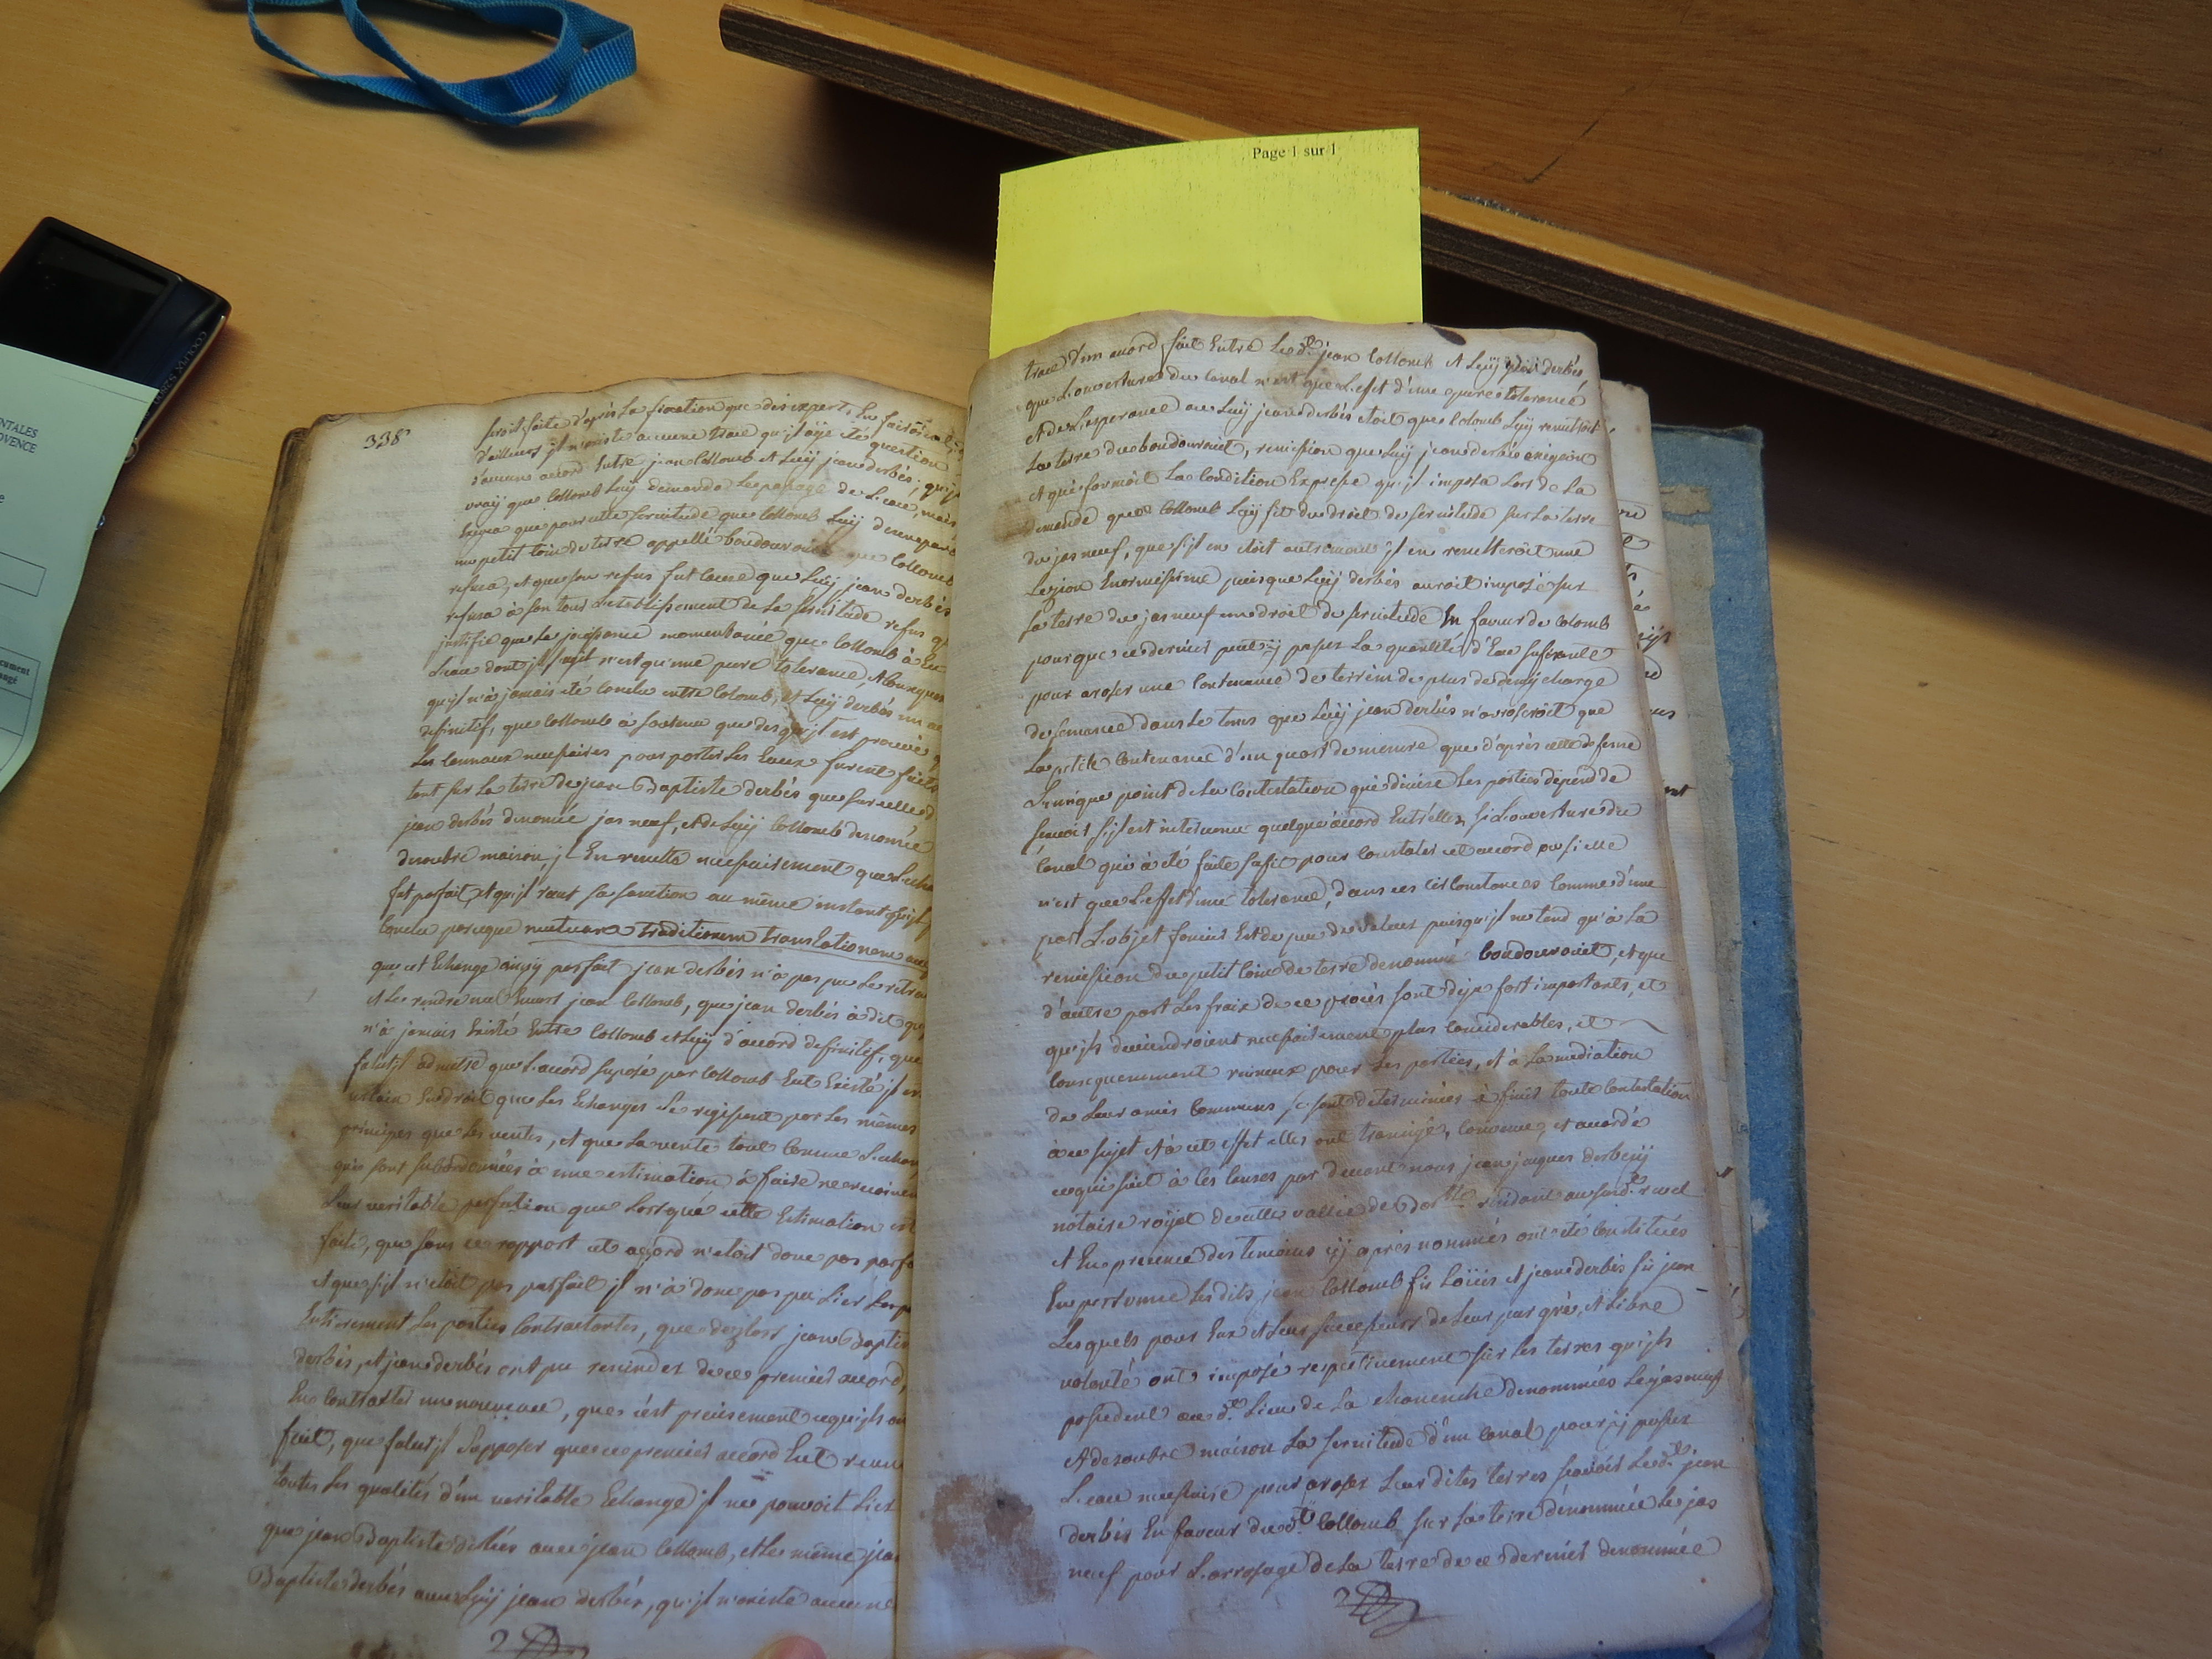 Page 1 sur 1
NTALES
OVENCE
338
seroit faite d'après La fixation que des experts En
d'ailleurs jl n'existe aucune trace qu'jl aÿe été question
d'aucun accord Entre jean Collomb et Luÿ jean derbés, qu'jl
vraÿ que Collomb Luÿ demanda Le passage de L'eau, mais
Exigea que pour cette servitude que Collomb Luÿ
un petit coin de terre appellé boudouroiet que Collomb
refusa, et que son refus fut cause que Luÿ jean derbés
refusa à son tour L'établissement de La servitude refus
justifie que La joüissance momentanée que Collomb à Eu
L'eau dont jl s'agit n'est qu'une pure tolerance,
qu'jl n'à jamais été conclu entre Colomb, et Luÿ derbés un
definitif, que Collomb à soutenu que des qu'jl est prouvé
Les cannaux necessaires pour porter Les Eaux furent faits
tant sur La terre de jean Baptiste derbés que sur celle
jean derbés denomée jas neuf, et de Luÿ Collomb denomée
desoubre maison, jl En resulte necessairement que
fut parfait et qu'jl reçut sa sanction au même instant qu'jl
conclu parceque mutuam traditionem translationem
que cet Echange ainsÿ parfait jean derbés n'à pas pu Le
et Le rendre nul Envers jean Collomb, que jean derbés à dit
n'à jamais Existé Entre Collomb et Luÿ d'accord definitif, que
falut jl admettre que L'accord suposé par Collomb Eut Existé jl
certain En droit que Les Echanges se regissent par Les mêmes
principes que Les ventes, et que La vente tout Comme
qui sont subordonnées à une estimation à faire ne
Leur veritable perfection que Lorsque cette Estimation est
faite, que sous ce rapport cet accord n'etoit donc pas
et que s'jl n'etoit pas parfait jl n'à donc pas pu Lier
Entierement Les parties Contractantes, que dezlors jean
derbés, et jean derbés ont pu resinder de ce premier accord,
En Contracter un nouveau, que c'est precisement ce qu'jls
fait, que falut jl supposer que ce premier accord Eut
toutes Les qualités d'un veritable Echange jl ne pouvoit Lier
que jean Baptiste derbés avec jean Collomb, et Le même
Baptiste derbés avec Luÿ jean derbés, qu'jl n'existe aucune
trace d'un accord fait Entre Le dt. jean Collomb et Luÿ derbés
que L'ouverture du Canal n'est que L'effet d'une pure tolerance
et de L'esperance ou Luÿ jean derbés etoit que Colomb Luÿ remettroit
La terre du boudouroiet, remission que Luÿ jean derbés exigeoit
et qui formoit La Condition Expresse qu'jl imposa Lors de La
demande que Collomb Luÿ fit du droit de servitude sur La terre
du jas neuf, que s'jl en etoit autrement jl en resulteroit une
Lezion Enormissime puisque Luÿ derbés auroit imposé sur
sa terre du jas neuf un droit de servitude En faveur de Colomb
pour que ce dernier peut ÿ passer La quantité d'Eau sufisante
pour aroser une Contenance de terrein de plus de demÿ charge
de semance dans Le tems que Luÿ jean derbés n'auroseroit que
La petite Contenance d'un quart de mesure que d'après cette defense
L'unique point de La Contestation qui divise Les parties depend de
sçavoir s'jl est intervenu quelque accord Entr'elles, si L'ouverture du
Canal qui à été faite sufit pour Constater cet accord ou si elle
n'est que L'effet d'une tolerance, dans ces circonstances Comme d'une
part L'objet foncier Est de peu de valeur puisqu'jl ne tend qu'à La
remission du petit Coin de terre denommé boudouroiet, et que
d'autre part Les fraix de ce procès sont deja fort importants, et
qu'jls deviendroient necessairement plus Considerables, et
Consequemment ruineux pour Les parties, et à La mediation
de Leurs amis Communs se sont determinées à finir toute Contestation
à ce sujet et à cet effet elles ont transigé, Convenu, et accordé
ce qui suit à Ces Causes par devant nous jean jaques derbeÿ
notaire roÿal de cette vallée de residant au
et En presence des temoins cÿ après nommés ont été Constitués
En personne Les dits jean Collomb feu Loüis et jean derbés feu jean
Lesquels pour Eux et Leur successeurs de Leur pur gré, et Libre
volonté ont imposé respectivement sur Les terres qu'jls
possedent au dt. Lieu de La denommées Le jas neuf
et desoubre maison La servitude d'un Canal pour ÿ passer
L'eau necessaire pour aroser Leur dites terres sçavoir Le dt. jean
derbés En faveur du dt. Collomb sur sa terre denommée Le jas
neuf pour L'arrosage de La terre de ce dernier denommée